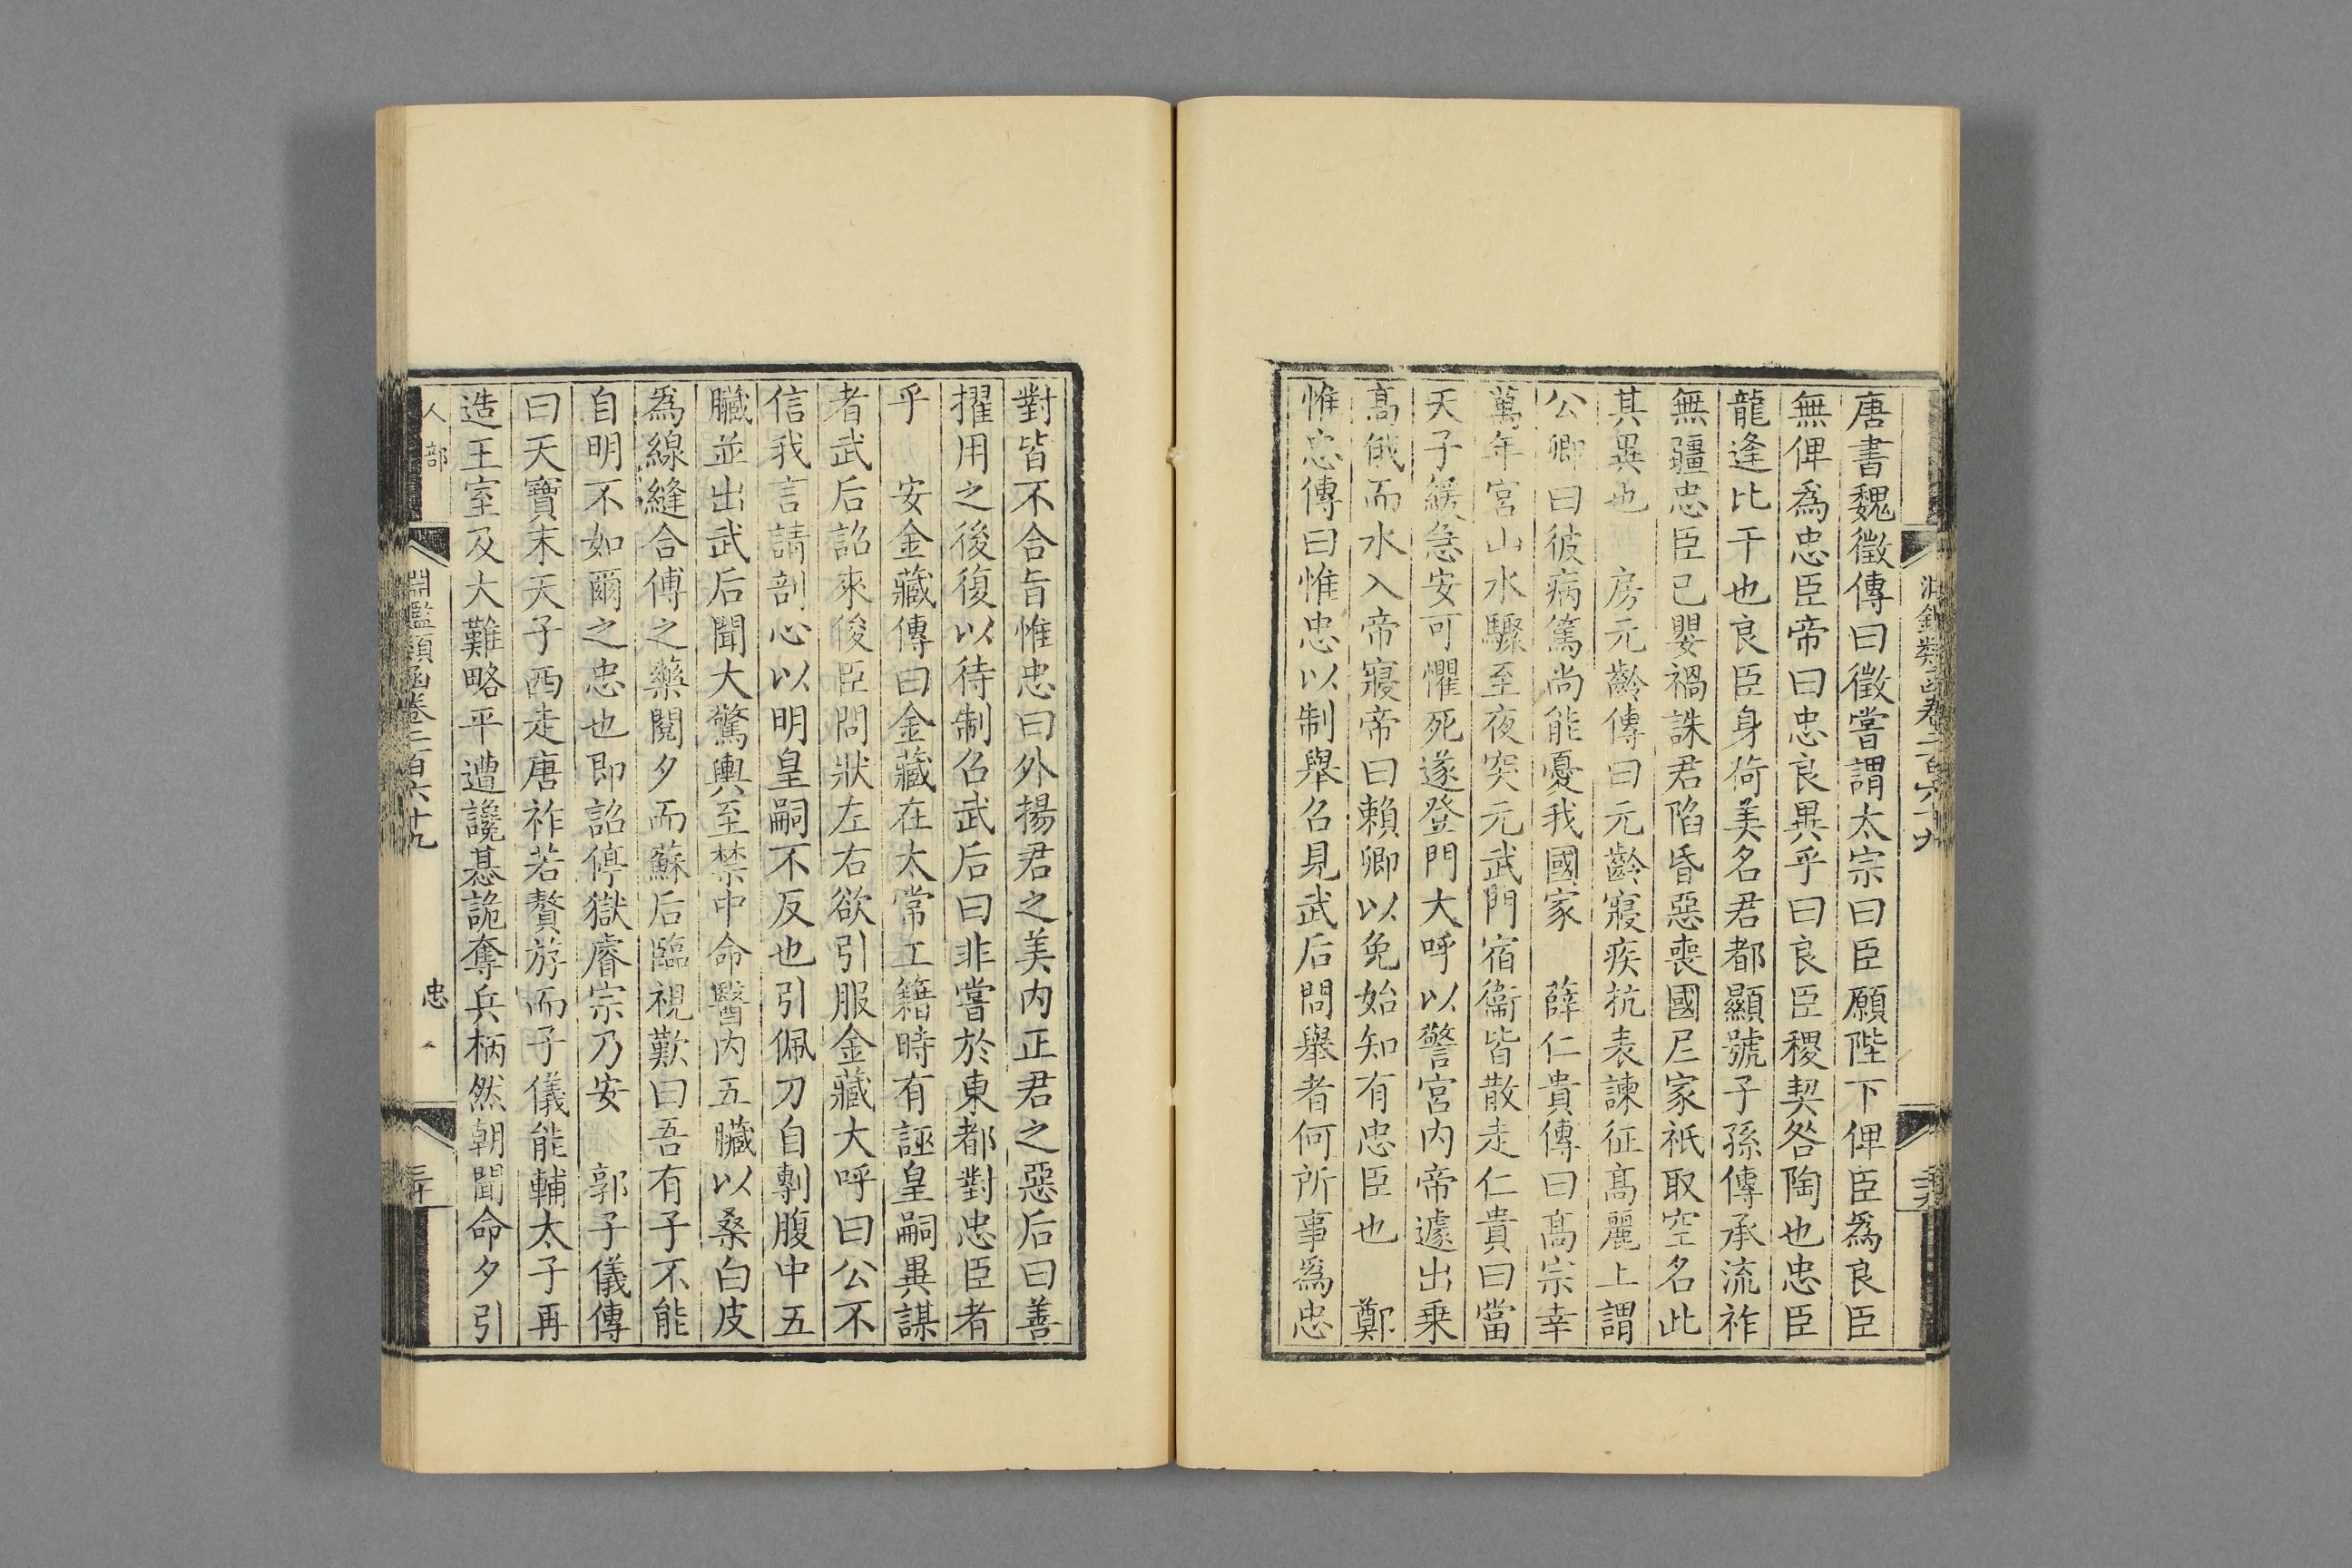 唐書魏徵傳曰徵嘗謂太宗曰臣願陛下俾臣爲良臣
無俾爲忠臣帝曰忠良異乎曰良臣稷契咎陶也忠臣
龍逢比干也良臣身荷美名君都顯號子孫傳承流祚
無疆忠臣已嬰禍誅君陷昏惡喪國尼家祇取空名此
其異也　房元齡傳曰元齡寢疾抗表諫征髙麗上謂
公卿曰彼病篤尚能憂我國家　薛仁貴傳曰髙宗幸
萬年宮山水驟至夜突元武門宿衞皆散走仁貴曰當
天子緩急安可懼死遂登門大呼以警宮内帝遽出乗
髙俄而水入帝寢帝曰賴卿以免始知有忠臣也　鄭
惟忠傳曰惟忠以制舉召見武后問舉者何所事爲忠
對皆不合旨惟忠曰外揚君之美内正君之惡后曰善
擢用之後復以待制召武后曰非嘗於東都對忠臣者
乎　安金藏傳曰金藏在太常工籍時有誣皇嗣異謀
者武后詔來俊臣問狀左右欲引服金藏大呼曰公不
信我言請剖心以明皇嗣不反也引佩刀自剸腹中五
臟並出武后聞大驚輿至禁中命醫内五臟以桑白皮
爲線縫合傅之藥閱夕而蘇后臨視歎曰吾有子不能
自明不如爾之忠也即詔停獄睿宗乃安　郭子儀傳
曰天寶末天子西走唐祚若贅斿而子儀能輔太子再
造王室及大難略平遭讒惎詭奪兵柄然朝聞命夕引
人部
淵鑑類函卷二百六十九
忠一
三十